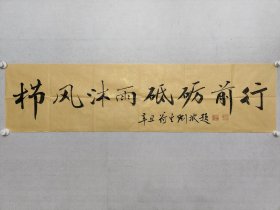 栉风沐雨砥砺前行
辛丑